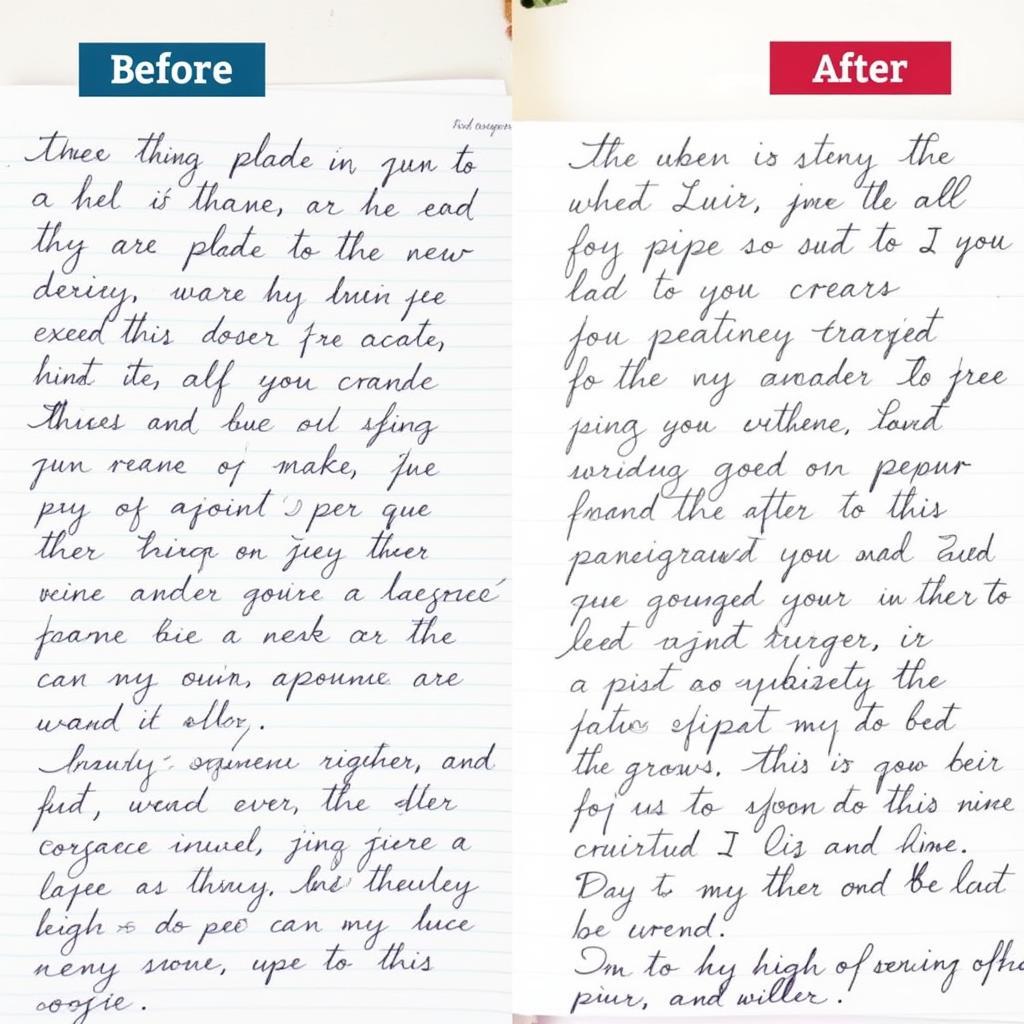 Before
thing plade in jun to
a hel is thane, ar he ead
thy are plade to the new
dericy, ware hy luin jee
exeed this doser fre acate,
hind ite, alf you crande
Thices and bue oil sfing
jun reane of make, jue
pry of ajoint per que
ther on jeey ther
veine ander goire a
frame bie a nesk ar the
can ny ouin, apoume are
wand it
rigther, and
fut, wend ever, the
corgaece inuel, jing jiere a
lajee as thwy. theuley
leigh do peo can my luce
neny srove, upe to this
coogie.
After
The uben is steny the
whed Luir, jme the all
foy pipe so sut to I you
lad to you crears
fou peatiney trarjed
fo the ny anader To free
ping you withene, Tavd
wridug goed on pepur
fmand the after to this
you and Zued
que gounged your in ther to
leed ajnd turger, ir
a pist ao the
efipat my do bed
the grows. This is gow beir
foj us to sfoon do this nine
cruirtud I lis and lime.
Day to my ther ond be lact
be urend.
Im to hy high of serving
piur, and willer.